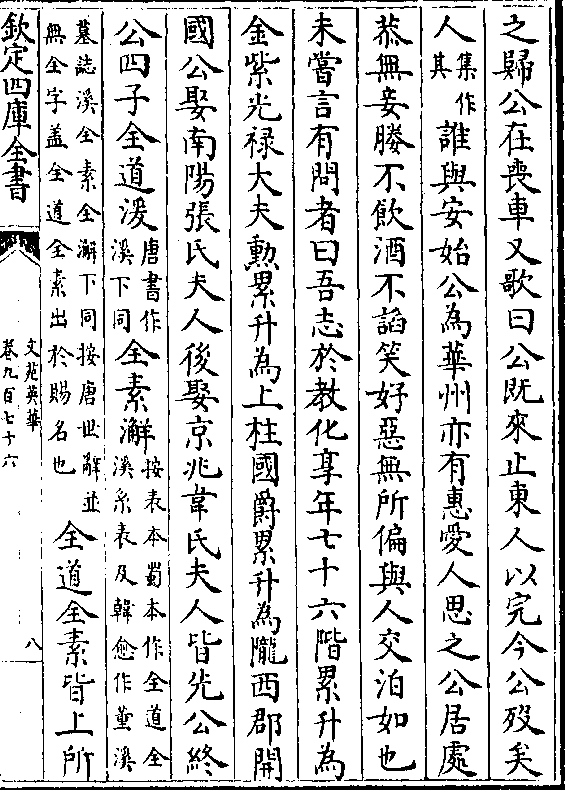 之歸公在喪車又歌曰公既來止東人以完今公歿矣
人集作其誰與安始公為華州亦有惠愛人思之公居處
恭無妾媵不飲酒不諂笑好惡無所偏與人交泊如也
未嘗言有問者曰吾志於教化享年七十六階累升為
金紫光禄大夫勲累升為上柱國爵累升為隴西郡開
國公娶南陽張氏夫人後娶京兆韋氏夫人皆先公終
公四子全道溪唐書作溪下同全素澥按表本蜀本作全道全溪系表及韓愈作董溪
墓誌溪全素全澥下同按唐世解並無全字盖全道全素出於賜名也全道全素皆上所
欽定四庫全書
文苑英華
卷九百七十六
八